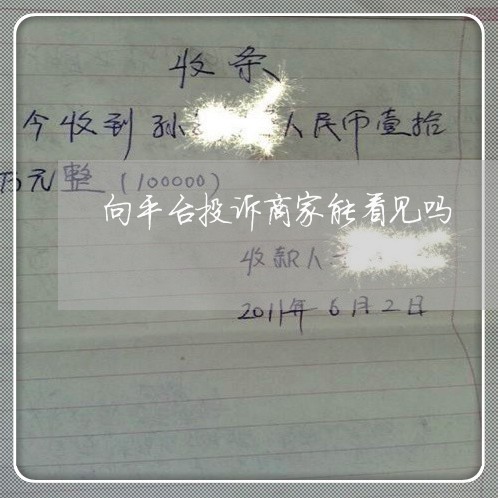 收条
今收到孙 人民币壹拾
万元整(100000)
向平台投诉商家能看见吗
收款人
2011年6月2日